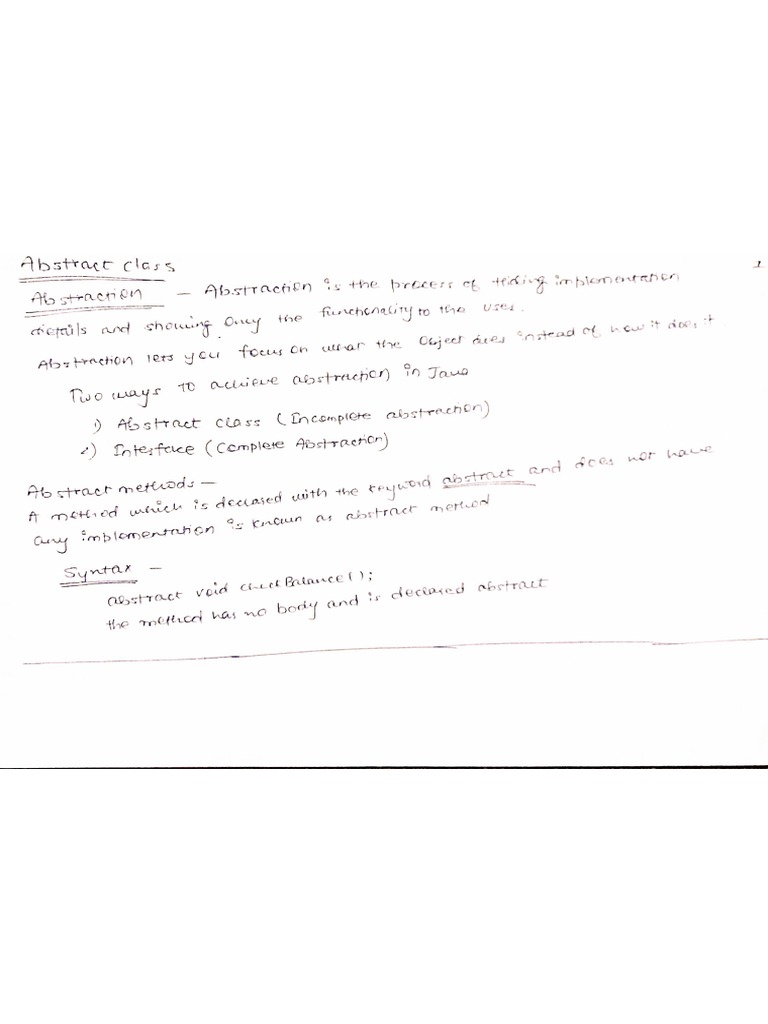 Abstract class
1
Abstraction - Abstraction is the process of hiding implementation
details and showing only the functionality to the user.
Abstraction lets you focus on what the Object does instead of how it does it
Two ways to achieve abstraction in Java
1) Abstract class (Incomplete abstraction)
2) Interface (Complete Abstraction)
Abstract methods -
A method which is declared with the keyword abstract and does not have
any implementation is known as abstract method
Syntax -
abstract void checkBalance();
the method has no body and is declared abstract